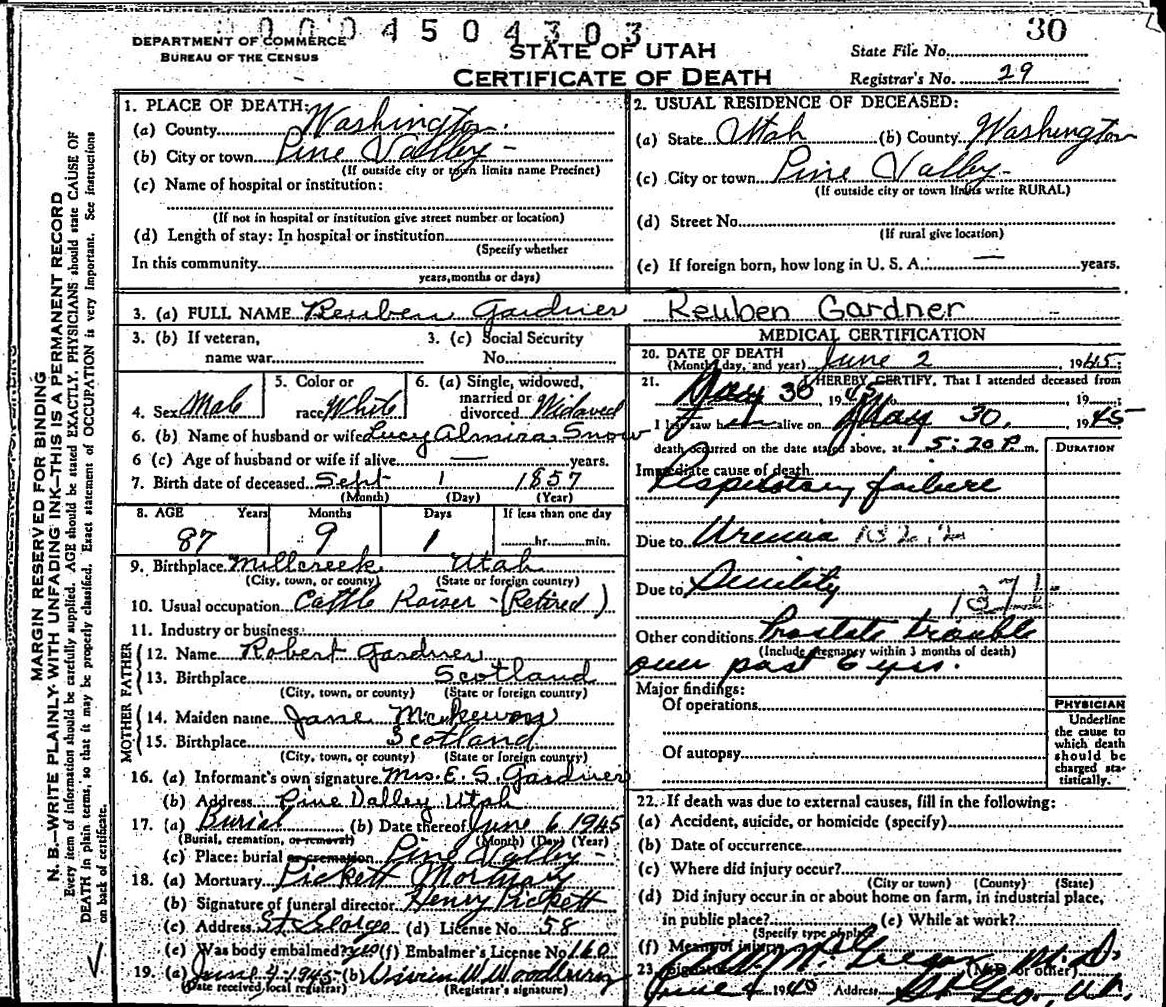 00004504303
30
DEPARTMENT OF COMMERCE
BUREAU OF THE CENSUS
STATE OF UTAH
CERTIFICATE OF DEATH
State File No.
Registrar's No. 29
MARGIN RESERVED FOR BINDING
N. B.—WRITE PLAINLY WITH UNFADING INK—THIS IS A PERMANENT RECORD
Every item of information should be carefully supplied. AGE should be stated EXACTLY. PHYSICIANS should state CAUSE OF
DEATH in plain terms, so that it may be properly classified. Exact statement of OCCUPATION is very important. See instructions
on back of certificate.
1. PLACE OF DEATH:
(a) County Washington
(b) City or town Pine Valley
(If outside city or town limits name Precinct)
(c) Name of hospital or institution:
(If not in hospital or institution give street number or location)
(d) Length of stay: In hospital or institution
(Specify whether
In this community
years, months or days)
2. USUAL RESIDENCE OF DECEASED:
(a) State Utah (b) County Washington
(c) City or town Pine Valley
(If outside city or town limits write RURAL)
(d) Street No.
(If rural give location)
(e) If foreign born, how long in U. S. A. — years.
3. (a) FULL NAME Reuben Gardner Reuben Gardner
3. (b) If veteran,
name war
3. (c) Social Security
No.
4. Sex Male
5. Color or
race White
6. (a) Single, widowed,
married or
divorced Widowed
6. (b) Name of husband or wife Lucy Almira Snow
6 (c) Age of husband or wife if alive — years.
7. Birth date of deceased Sept 1 1857
(Month) (Day) (Year)
8. AGE Years Months Days If less than one day
87 9 1 hr. min.
9. Birthplace Millcreek Utah
(City, town, or county) (State or foreign country)
10. Usual occupation Cattle Raiser - (Retired)
11. Industry or business
FATHER
12. Name Robert Gardner
13. Birthplace Scotland
(City, town, or county) (State or foreign country)
MOTHER
14. Maiden name Jane McKewon
15. Birthplace Scotland
(City, town, or county) (State or foreign country)
16. (a) Informant's own signature Mrs. E. S. Gardner
(b) Address Pine Valley Utah
17. (a) Burial (b) Date thereof June 6 1945
(Burial, cremation, or removal) (Month) (Day) (Year)
(c) Place: burial or cremation Pine Valley
18. (a) Mortuary Pickett Mortuary
(b) Signature of funeral director Henry Pickett
(c) Address St George (d) License No. 58
(e) Was body embalmed? yes (f) Embalmer's License No. 160
19. (a) June 4 1945 (b) W. Woodbury
(Date received local registrar) (Registrar's signature)
MEDICAL CERTIFICATION
20. DATE OF DEATH
(Month, day, and year) June 2 1945
21. I HEREBY CERTIFY, That I attended deceased from
May 30 1945, to 19
I last saw him alive on May 30, 1945
death occurred on the date stated above, at 5:20 P. m.
DURATION
Immediate cause of death
Respiratory failure
Due to Uremia 132.2
Due to Senility
137
Other conditions Prostate trouble
(Include pregnancy within 3 months of death)
over past 6 yrs.
Major findings:
Of operations
Of autopsy
PHYSICIAN
Underline
the cause to
which death
should be
charged sta-
tistically.
22. If death was due to external causes, fill in the following:
(a) Accident, suicide, or homicide (specify)
(b) Date of occurrence
(c) Where did injury occur?
(City or town) (County) (State)
(d) Did injury occur in or about home on farm, in industrial place,
in public place? (e) While at work?
(Specify type of place)
(f) Means of injury
23. Signature McGregor M.D.
(M.D. or other)
June 4 1945 Address St Geo. Ut.